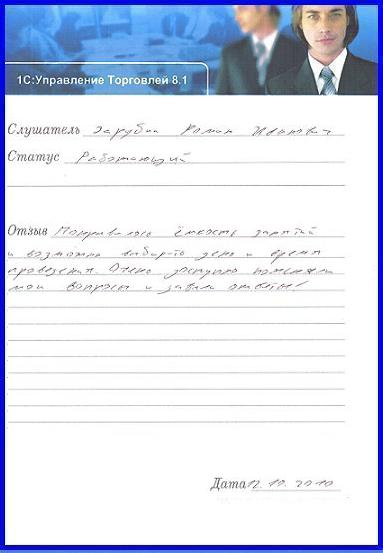 1С:Управление Торговлей 8.1
Слушатель Зарубин Роман Иванович
Статус Работающий
Отзыв Понравилось ёмкость занятий
и возможно выбирать день и время
проведения. Очень доступно
мои вопросы и ответы!
Дата 12.10.2010